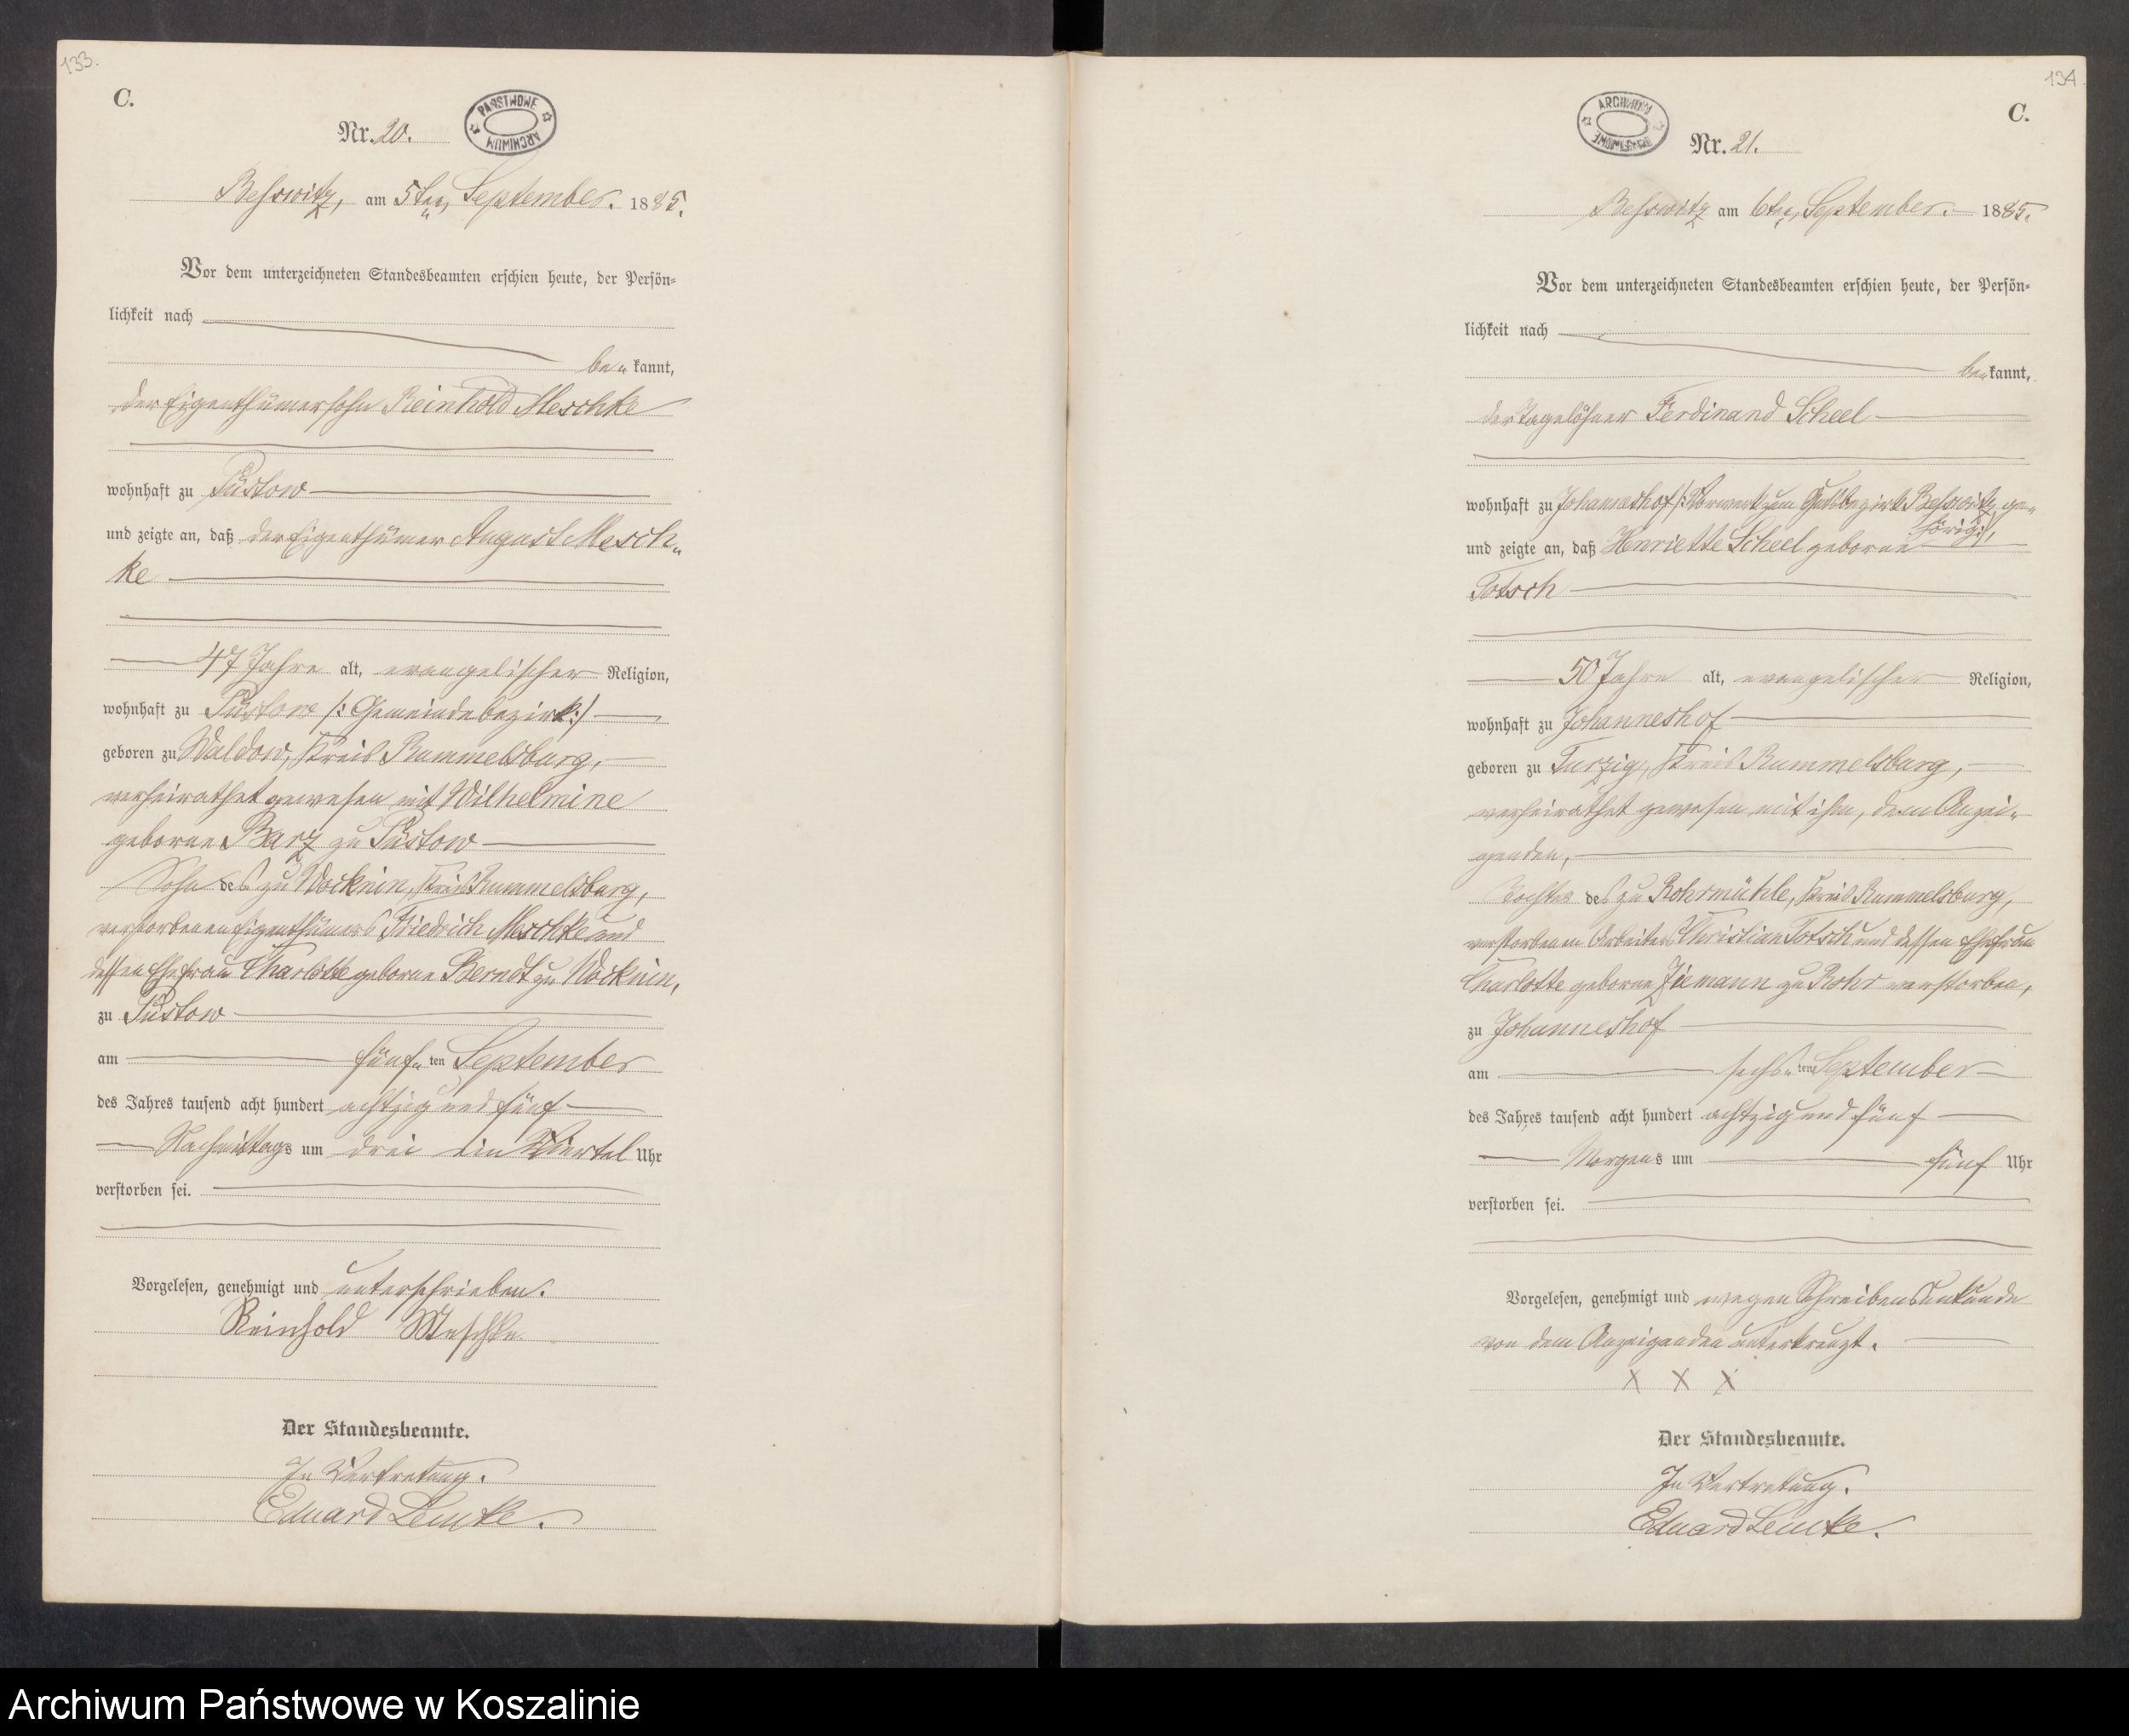 133.
C.
PAŃSTWOWE ARCHIWUM
Nr. 20.
Beßwitz, am 5ten September. 1885.
Vor dem unterzeichneten Standesbeamten erschien heute, der Persön-
lichkeit nach
be- kannt,
der Eigenthümersohn Reinhold Meschke
wohnhaft zu Püstow
und zeigte an, daß der Eigenthümer August Mesch-
ke
47 Jahre alt, evangelischer Religion,
wohnhaft zu Püstow /: Gemeindebezirk :/
geboren zu Waldow, Kreis Rummelsburg,
verheirathet gewesen mit Wilhelmine
geborne Barz zu Püstow
Sohn des zu Wocknin, Kreis Rummelsburg,
verstorbenen Eigenthümers Friedrich Meschke und
dessen Ehefrau Charlotte geborne Berndt zu Wocknin,
zu Püstow
am fünf- ten September
des Jahres tausend acht hundert achtzig und fünf
Nachmittags um drei ein Viertel Uhr
verstorben sei.
Vorgelesen, genehmigt und unterschrieben.
Reinhold Meschke
Der Standesbeamte.
In Vertretung.
Eduard Lemke.
134.
C.
ARCHIWUM PAŃSTWOWE
Nr. 21.
Beßwitz am 6ten September. 1885.
Vor dem unterzeichneten Standesbeamten erschien heute, der Persön-
lichkeit nach
be- kannt,
der Tagelöhner Ferdinand Scheel
wohnhaft zu Johanneshof /: Vorwerk zum Gutsbezirk Beßwitz ge-
hörig :/,
und zeigte an, daß Henriette Scheel geborne
Totsch
50 Jahre alt, evangelischer Religion,
wohnhaft zu Johanneshof
geboren zu Turzig, Kreis Rummelsburg,
verheirathet gewesen mit ihm, dem Anzei-
genden,
Tochter des zu Rohrmühle, Kreis Rummelsburg,
verstorbenen Arbeiters Christian Totsch und dessen Ehefrau
Charlotte geborne Ziemann zu Rohr verstorben,
zu Johanneshof
am sechs- ten September
des Jahres tausend acht hundert achtzig und fünf
Morgens um fünf Uhr
verstorben sei.
Vorgelesen, genehmigt und wegen Schreibensunkunde
von dem Anzeigenden unterkreuzt.
X X X
Der Standesbeamte.
In Vertretung.
Eduard Lemke.
Archiwum Państwowe w Koszalinie